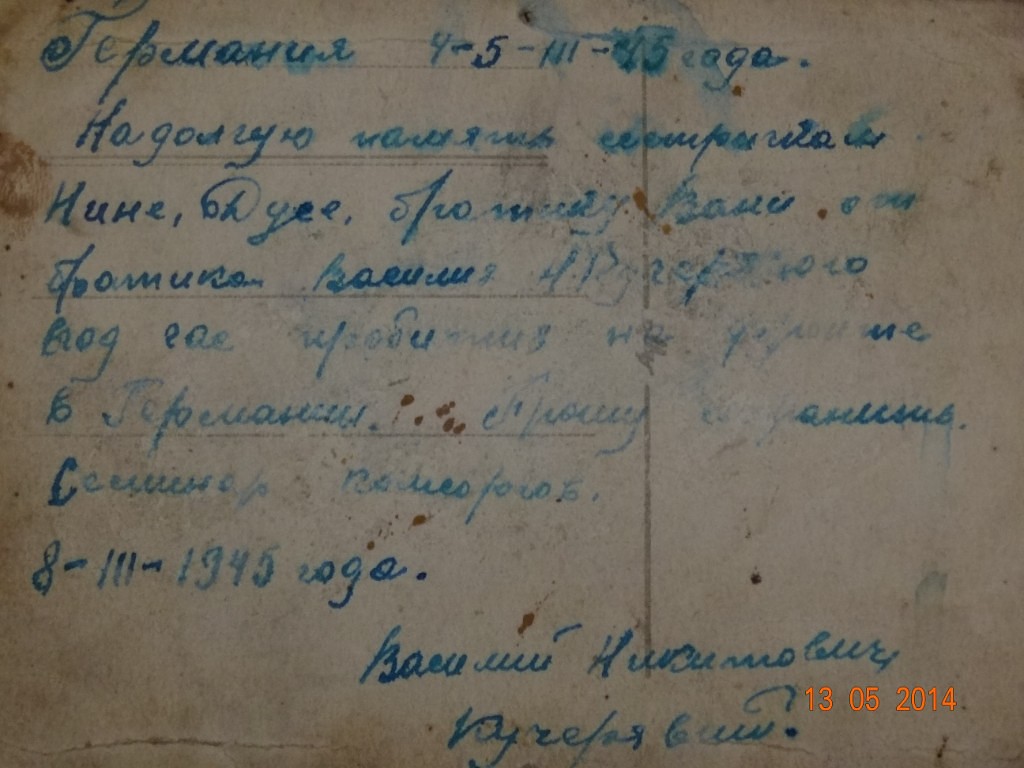 Германия 4-5-III-45 года.
На долгую память сестричкам
Нине, Дусе, братику Вани от
братика Василия Кучерявого
под час пробития на фронте
в Германии. Прошу сохранить.
Семинар комсоргов.
8-III-1945 года.
Василий Никитович
Кучерявый.
13 05 2014